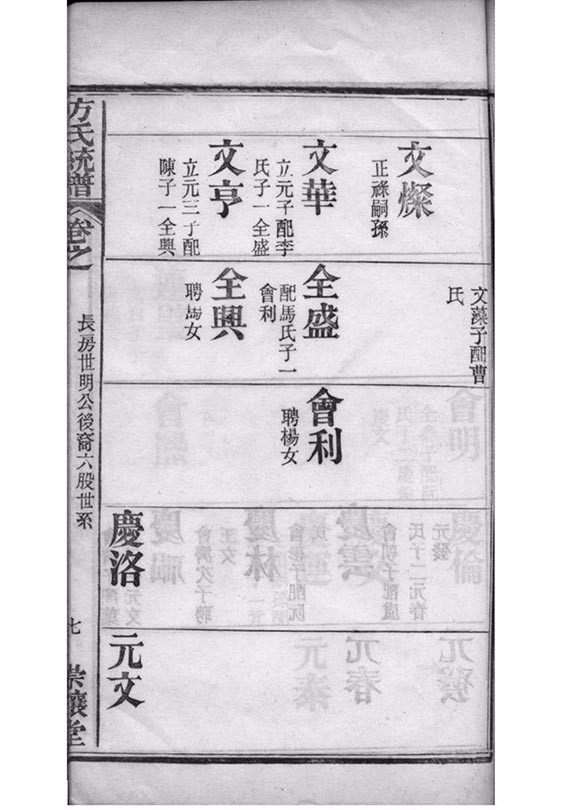 文燦
正祿嗣孫
文華
立元子配李
氏子一全盛
文亨
立元三子配
陳子一全興
文藻子配曹
氏
全盛
配馬氏子一
會利
全興
聘馬女
會利
聘楊女
慶洛
元文
方氏統譜
卷之
長房世明公後裔六股世系
七
崇讓堂